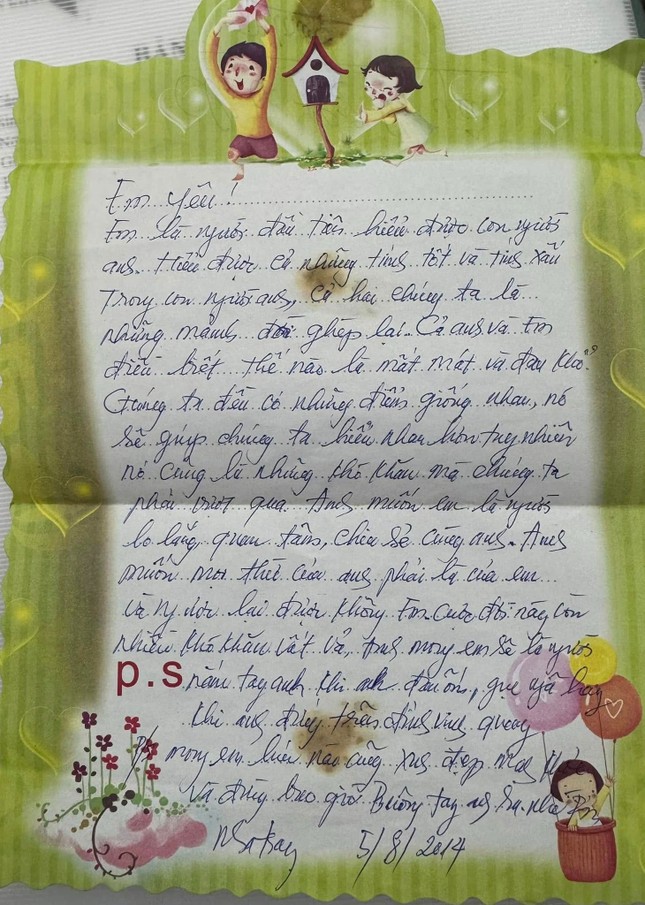 Em yêu!
Em là người đầu tiên hiểu được con người
anh. Hiểu được cả những tính tốt và tính xấu
Trong con người anh, cả hai chúng ta là
những mảnh đời ghép lại. Cả anh và Em
điều biết thế nào là mất mát và đau khổ.
Chúng ta đều có những điểm giống nhau, nó
sẽ giúp chúng ta hiểu nhau hơn tuy nhiên
nó cũng là những khó khăn mà chúng ta
phải vượt qua. Anh muốn em là người
lo lắng, quan tâm, chia sẻ cùng anh. Anh
muốn mọi thứ của anh phải là của em
và ngược lại được không Em cuộc đời này còn
nhiều khó khăn vất vả, Anh mong em sẽ là người
p.s nắm tay anh khi anh đau ốm, gục ngã hay
khi anh đứng trên đỉnh vinh quang
mong em lúc nào cũng xinh đẹp
Và đừng bao giờ Buông tay anh ra nhé Em
5/8/2014